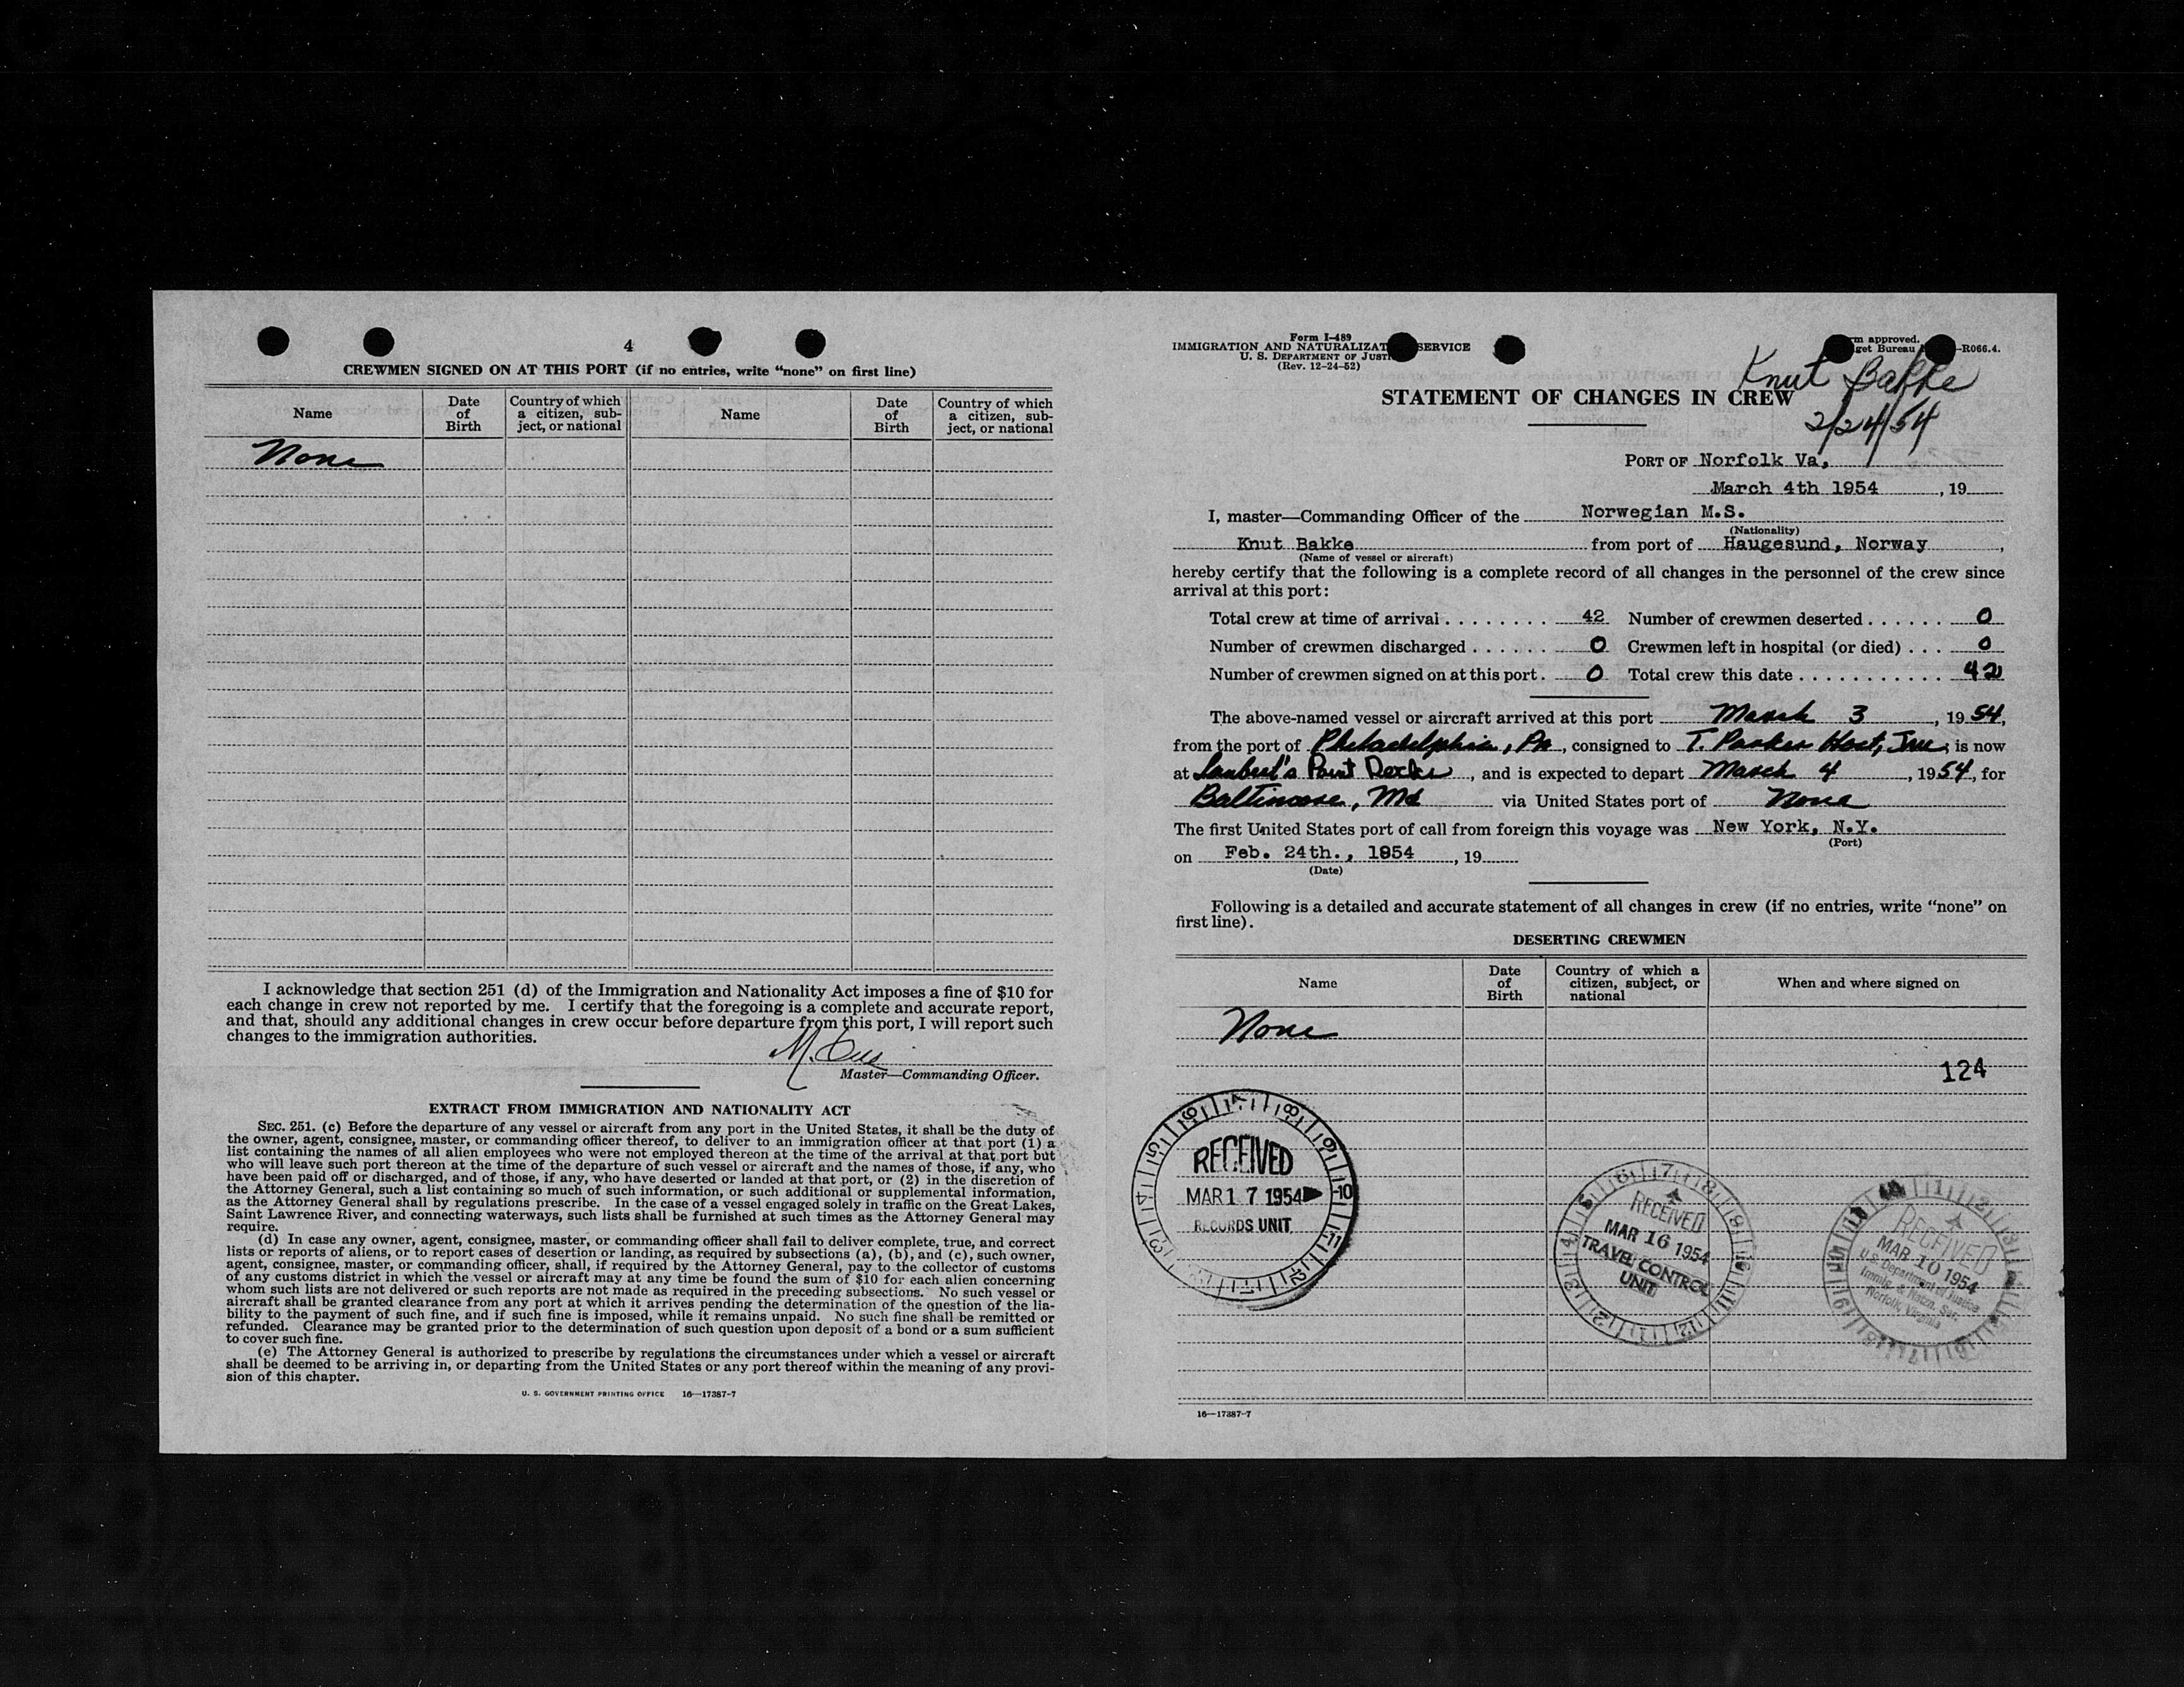 4
CREWMEN SIGNED ON AT THIS PORT (if no entries, write “none” on first line)
Name
Date of Birth
Country of which a citizen, subject, or national
Name
Date of Birth
Country of which a citizen, subject, or national
None
I acknowledge that section 251 (d) of the Immigration and Nationality Act imposes a fine of $10 for
each change in crew not reported by me. I certify that the foregoing is a complete and accurate report,
and that, should any additional changes in crew occur before departure from this port, I will report such
changes to the immigration authorities.
M.
Master—Commanding Officer.
EXTRACT FROM IMMIGRATION AND NATIONALITY ACT
SEC. 251. (c) Before the departure of any vessel or aircraft from any port in the United States, it shall be the duty of
the owner, agent, consignee, master, or commanding officer thereof, to deliver to an immigration officer at that port (1) a
list containing the names of all alien employees who were not employed thereon at the time of the arrival at that port but
who will leave such port thereon at the time of the departure of such vessel or aircraft and the names of those, if any, who
have been paid off or discharged, and of those, if any, who have deserted or landed at that port, or (2) in the discretion of
the Attorney General, such a list containing so much of such information, or such additional or supplemental information,
as the Attorney General shall by regulations prescribe. In the case of a vessel engaged solely in traffic on the Great Lakes,
Saint Lawrence River, and connecting waterways, such lists shall be furnished at such times as the Attorney General may
require.
(d) In case any owner, agent, consignee, master, or commanding officer shall fail to deliver complete, true, and correct
lists or reports of aliens, or to report cases of desertion or landing, as required by subsections (a), (b), and (c), such owner,
agent, consignee, master, or commanding officer, shall, if required by the Attorney General, pay to the collector of customs
of any customs district in which the vessel or aircraft may at any time be found the sum of $10 for each alien concerning
whom such lists are not delivered or such reports are not made as required in the preceding subsections. No such vessel or
aircraft shall be granted clearance from any port at which it arrives pending the determination of the question of the lia-
bility to the payment of such fine, and if such fine is imposed, while it remains unpaid. No such fine shall be remitted or
refunded. Clearance may be granted prior to the determination of such question upon deposit of a bond or a sum sufficient
to cover such fine.
(e) The Attorney General is authorized to prescribe by regulations the circumstances under which a vessel or aircraft
shall be deemed to be arriving in, or departing from the United States or any port thereof within the meaning of any provi-
sion of this chapter.
U. S. GOVERNMENT PRINTING OFFICE 16—17387-7
Form I-489
IMMIGRATION AND NATURALIZAT SERVICE
U. S. DEPARTMENT OF JUST
(Rev. 12-24-52)
m approved.
get Bureau -R066.4.
Knut Bakke
2/24/54
STATEMENT OF CHANGES IN CREW
PORT OF Norfolk Va,
March 4th 1954 , 19
I, master—Commanding Officer of the Norwegian M.S.
(Nationality)
Knut Bakke from port of Haugesund, Norway ,
(Name of vessel or aircraft)
hereby certify that the following is a complete record of all changes in the personnel of the crew since
arrival at this port:
Total crew at time of arrival . . . . . . . . 42 Number of crewmen deserted . . . . . . 0
Number of crewmen discharged . . . . . . 0 Crewmen left in hospital (or died) . . . 0
Number of crewmen signed on at this port . 0 Total crew this date . . . . . . . . . . . 42
The above-named vessel or aircraft arrived at this port March 3 , 19 54,
from the port of Philadelphia, Pa , consigned to T. Parker Host, Inc, is now
at Lambert's Point Docks , and is expected to depart March 4 , 19 54, for
Baltimore, Md via United States port of None
The first United States port of call from foreign this voyage was New York, N.Y.
(Port)
on Feb. 24th., 1954 , 19
(Date)
Following is a detailed and accurate statement of all changes in crew (if no entries, write “none” on
first line).
DESERTING CREWMEN
Name
Date of Birth
Country of which a citizen, subject, or national
When and where signed on
None
124
RECEIVED
MAR 17 1954
RECORDS UNIT
RECEIVED
MAR 16 1954
TRAVEL CONTROL
UNIT
RECEIVED
MAR 10 1954
U.S. Department of Justice
Immig. & Natzn. Ser.
Norfolk, Virginia
16—17387-7